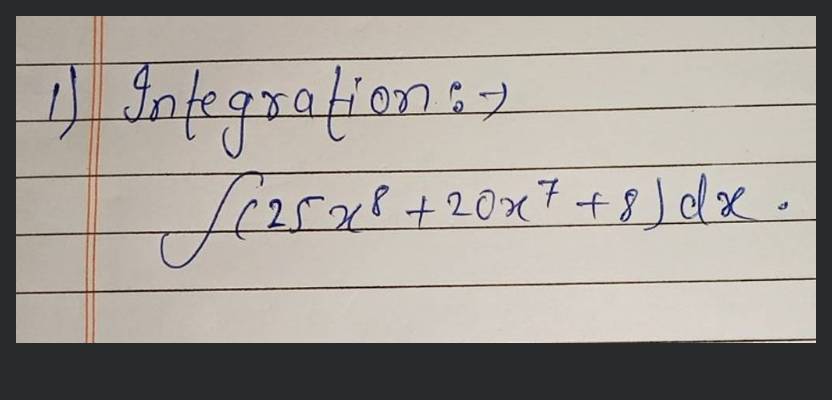 1) Integration :→
∫(25x⁸ + 20x⁷ + 8) dx .